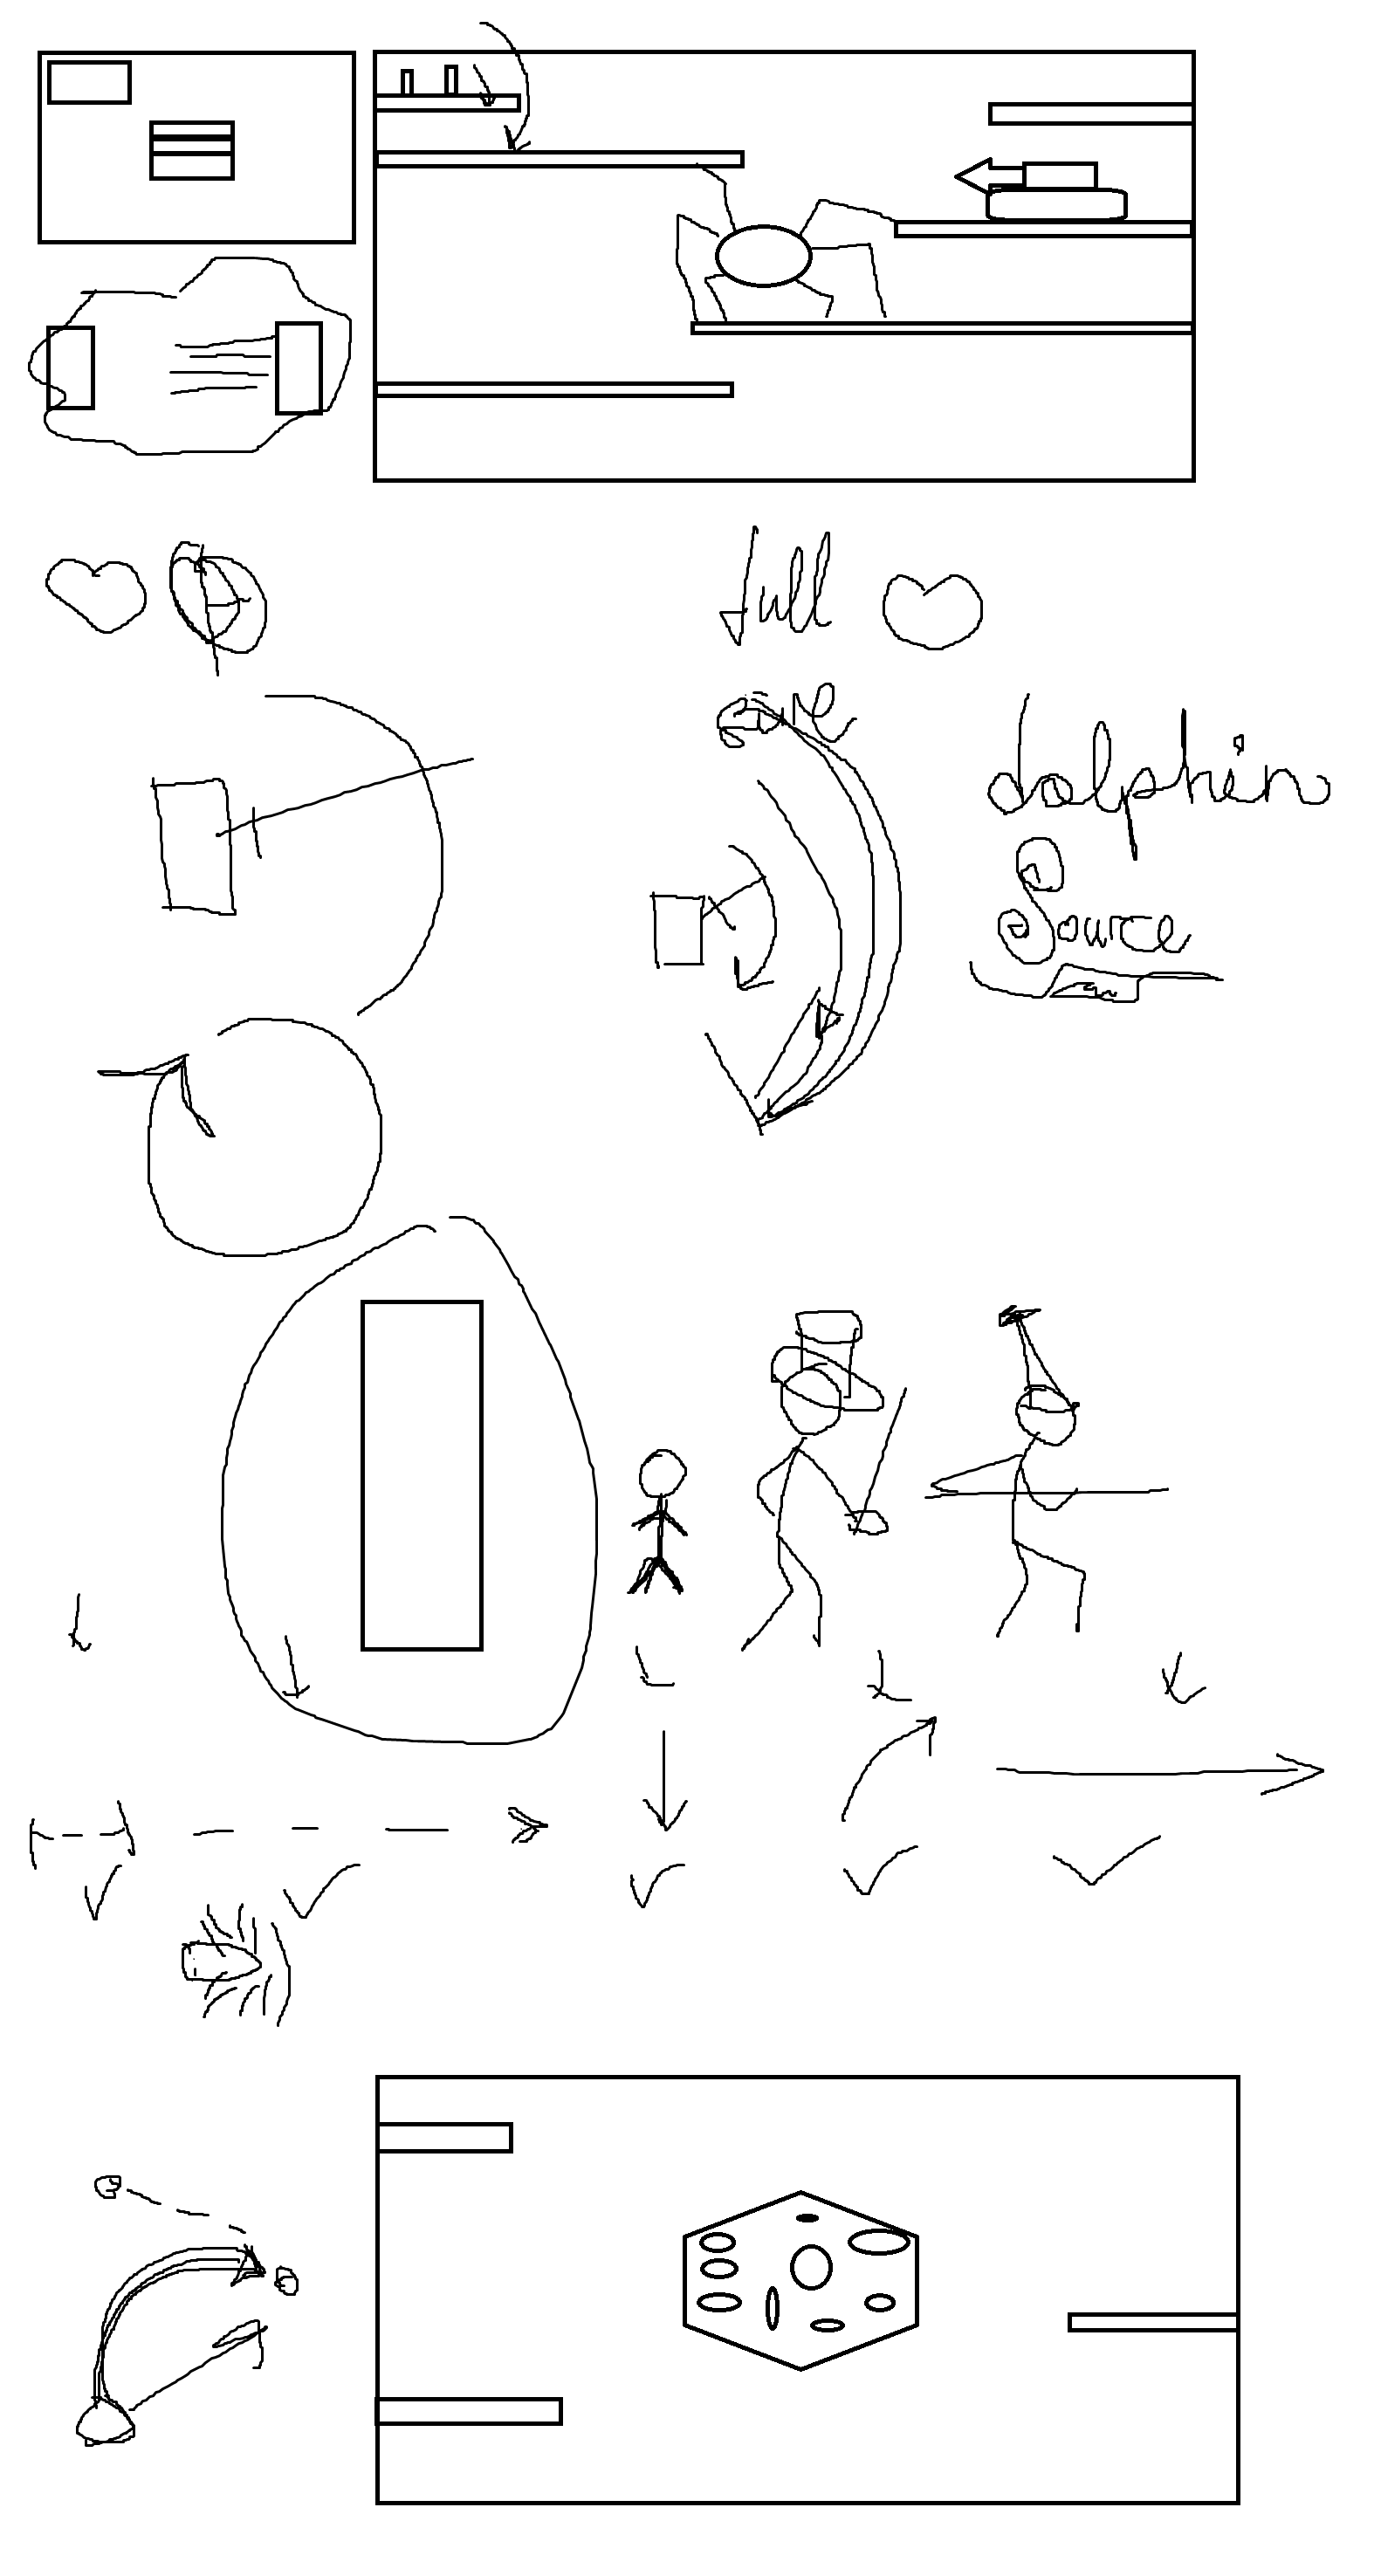 full
Save
dolphin
Source